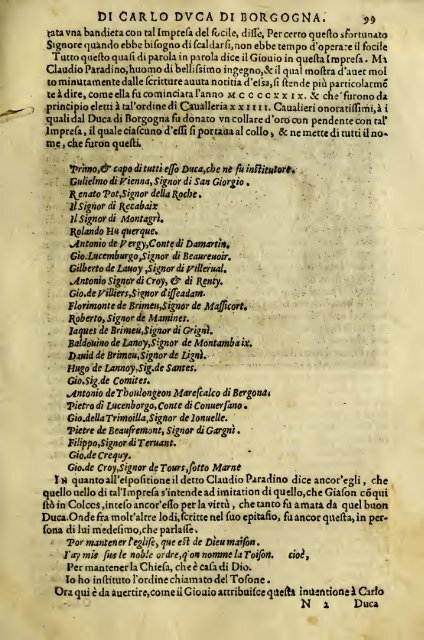 DI CARLO DVCA DI BORGOGNA. 99
tata vna bandieta con tal Impresa del focile, disse, Per certo questo sfortunato
Signore quando ebbe bisogno di scaldarsi, non ebbe tempo d'operare il focile
Tutto questo quasi di parola in parola dice il Giouio in questa Impresa. Ma
Claudio Paradino, huomo di bellissimo ingegno, & il qual mostra d'auer mol
to minutamente dalle scritture auuta notitia d'essa, si stende più particolarmẽ
te à dire, come ella fu cominciata l'anno MCCCCXXIX. & che furono da
principio eletti à tal'ordine di Caualleria XXIIII. Caualieri onoratissimi, à i
quali dal Duca di Borgogna fu donato vn collare d'oro con pendente con tal'
Impresa, il quale ciascuno d'essi si portaua al collo, & ne mette di tutti il no-
me, che furon questi.
Primo, & capo di tutti esso Duca, che ne fu institutore.
Gulielmo di Vienna, Signor di San Giorgio.
Renato Pot, Signor della Roche.
Il Signor di Recabaix
Il Signor di Montagrì.
Rolando Hu querque.
Antonio de Vergy, Conte di Damartin.
Gio. Lucemburgo, Signor di Beaureuoir.
Gilberto de Lanoy, Signor di Villerual.
Antonio Signor di Croy, & di Renty.
Gio. de Villiers, Signor d'isseadam.
Florimonte de Brimeu, Signor de Massicort.
Roberto, Signor de Mamines.
Iaques de Brimeu, Signor di Grignì.
Baldouino de Lanoy, Signor de Montambaix.
Dauid de Brimeu, Signor de Lignì.
Hugo de Lannoy, Sig. de Santes.
Gio. Sig. de Comites.
Antonio de Thoulongeon Marescalco di Bergona.
Pietro di Lucenborgo, Conte di Conuersano.
Gio. della Trimoilla, Signor de Ionuelle.
Pietre de Beaufremont, Signor di Gargnì.
Filippo, Signor di Teruant.
Gio. de Crequy.
Gio. de Croy, Signor de Tours, sotto Marne
IN quanto all'espositione il detto Claudio Paradino dice ancor'egli, che
quello uello di tal'Impresa s'intende ad imitation di quello, che Giason cõqui
stò in Colcos, inteso ancor'esso per la virtù, che tanto fu amata da quel buon
Duca. Onde fra molt'altre lodi, scritte nel suo epitafio, fu ancor questa, in per-
sona di lui medesimo, che parlasse.
Por mantener l'eglise, que est de Dieu maison.
I'ay mis sus le noble ordre, q'on nomme la Toison. cioè,
Per mantener la Chiesa, che è casa di Dio.
Io ho instituto l'ordine chiamato del Tosone.
Ora qui è da auertire, come il Giouio attribuisce questa inuentione à Carlo
N 2 Duca